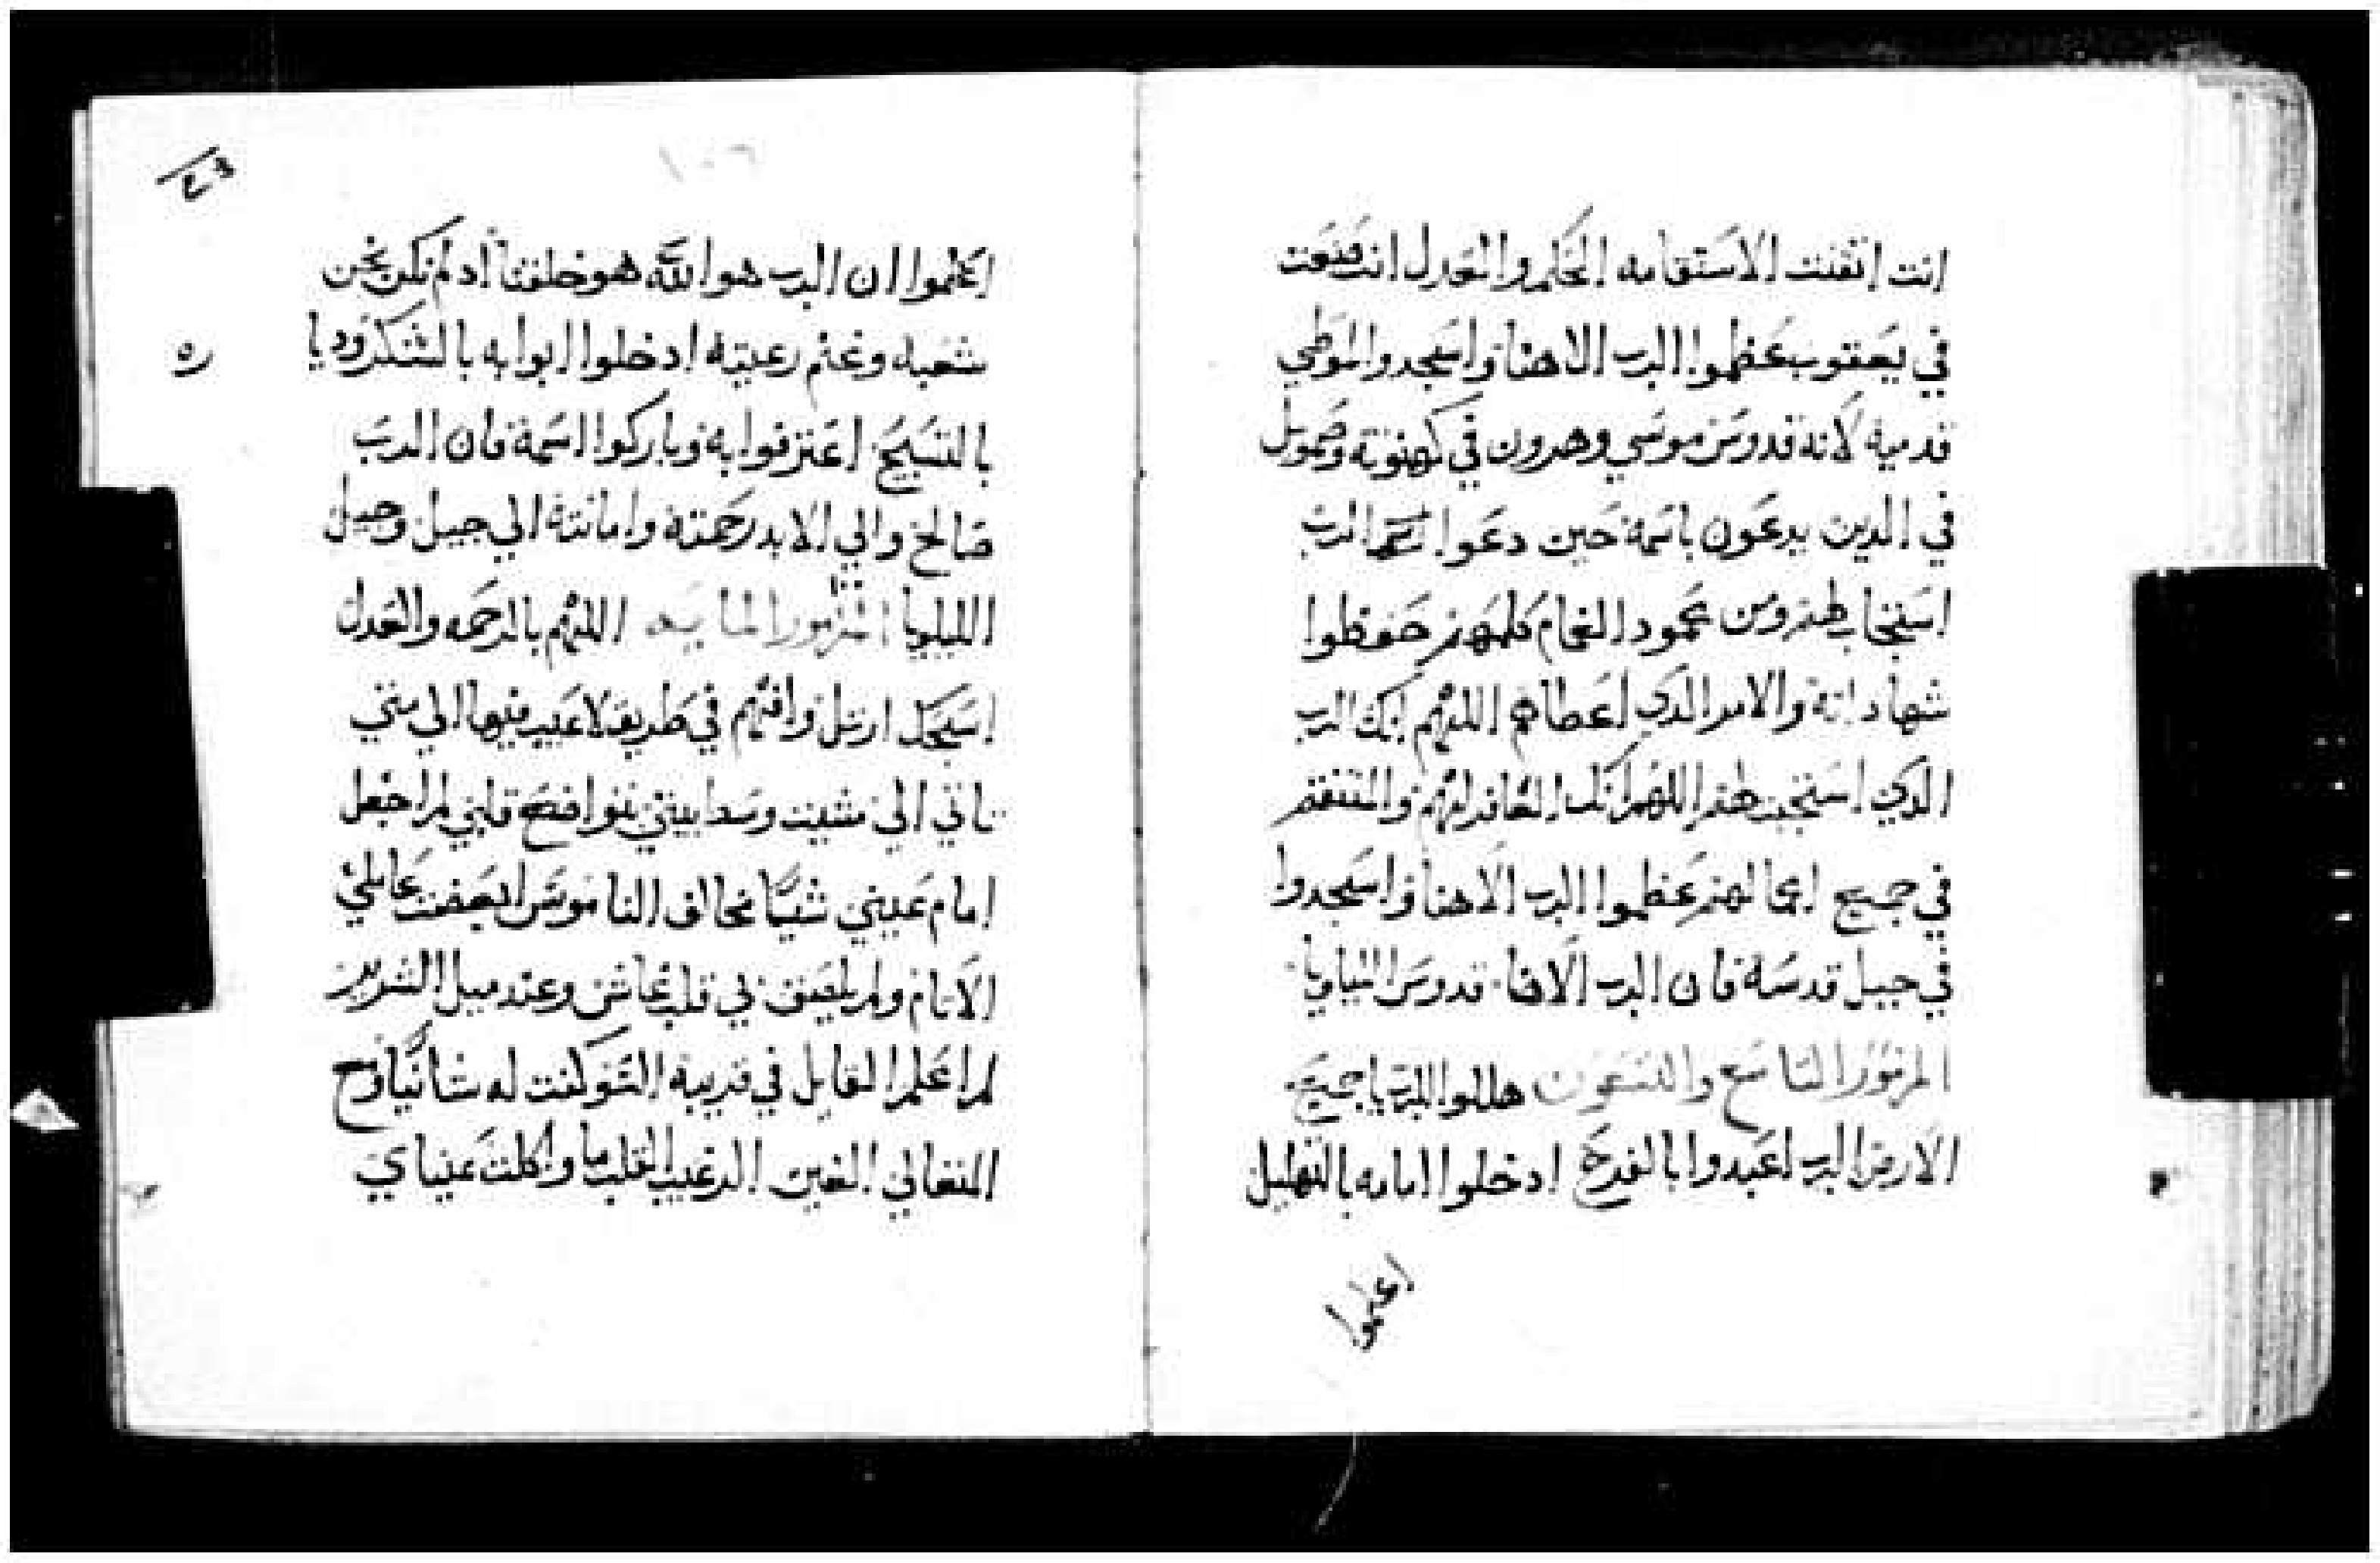 انت اتقنت الاستقامه الحكم والعدل انت صنعت
في يعقوب عظموا الرب الاهنا واسجدوا لموطي
قدميه لانه قدوس موسي وهرون في كهنوته وصمويل
في الدين يدعون باسمه حين دعوا اسم الرب
استجاب لهم ومن عمود الغمام كلمهم حفظوا
شهاداته والامر الدي اعطاهم اللهم انك الرب
الدي استجبت لهم اللهم انك الغافر لهم والمنتقم
في جميع اعمالهم عظموا الرب الاهنا واسجدوا
في جبل قدسه فان الرب الاهنا قدوس الليلويا
المزمور التاسع والتسعون هللوا للرب يا جميع
الارض الرب اعبدوا بالفرح ادخلوا امامه بالتهليل
اعلموا
١٠٦
اعلموا ان الرب هو الله هو خلقنا اد لم نكن نحن
شعبه وغنم رعيته ادخلوا ابوابه بالشكر وديا
بالتسبيح اعترفوا به وباركوا اسمه فان الرب
صالح والي الابد رحمته وامانته الي جيل وجيل
الليلويا المزمور المايه اللهم بالرحمه والعدل
اسبحك ارتل وافهم في طريق لا عيب فيها الي متي
تاتي الي مشيت وسط بيتي بتواضع قلبي لم اجعل
امام عيني شيا مخالف الناموس ابغضت عاملي
الاثام ولم يلصق بي قلب عاش وعند ميل الشرير
لم اعلم القايل في قريبه السو كنت له شانيا ومع
المتعالي العين الرغيب القلب ما واكلت عيناي